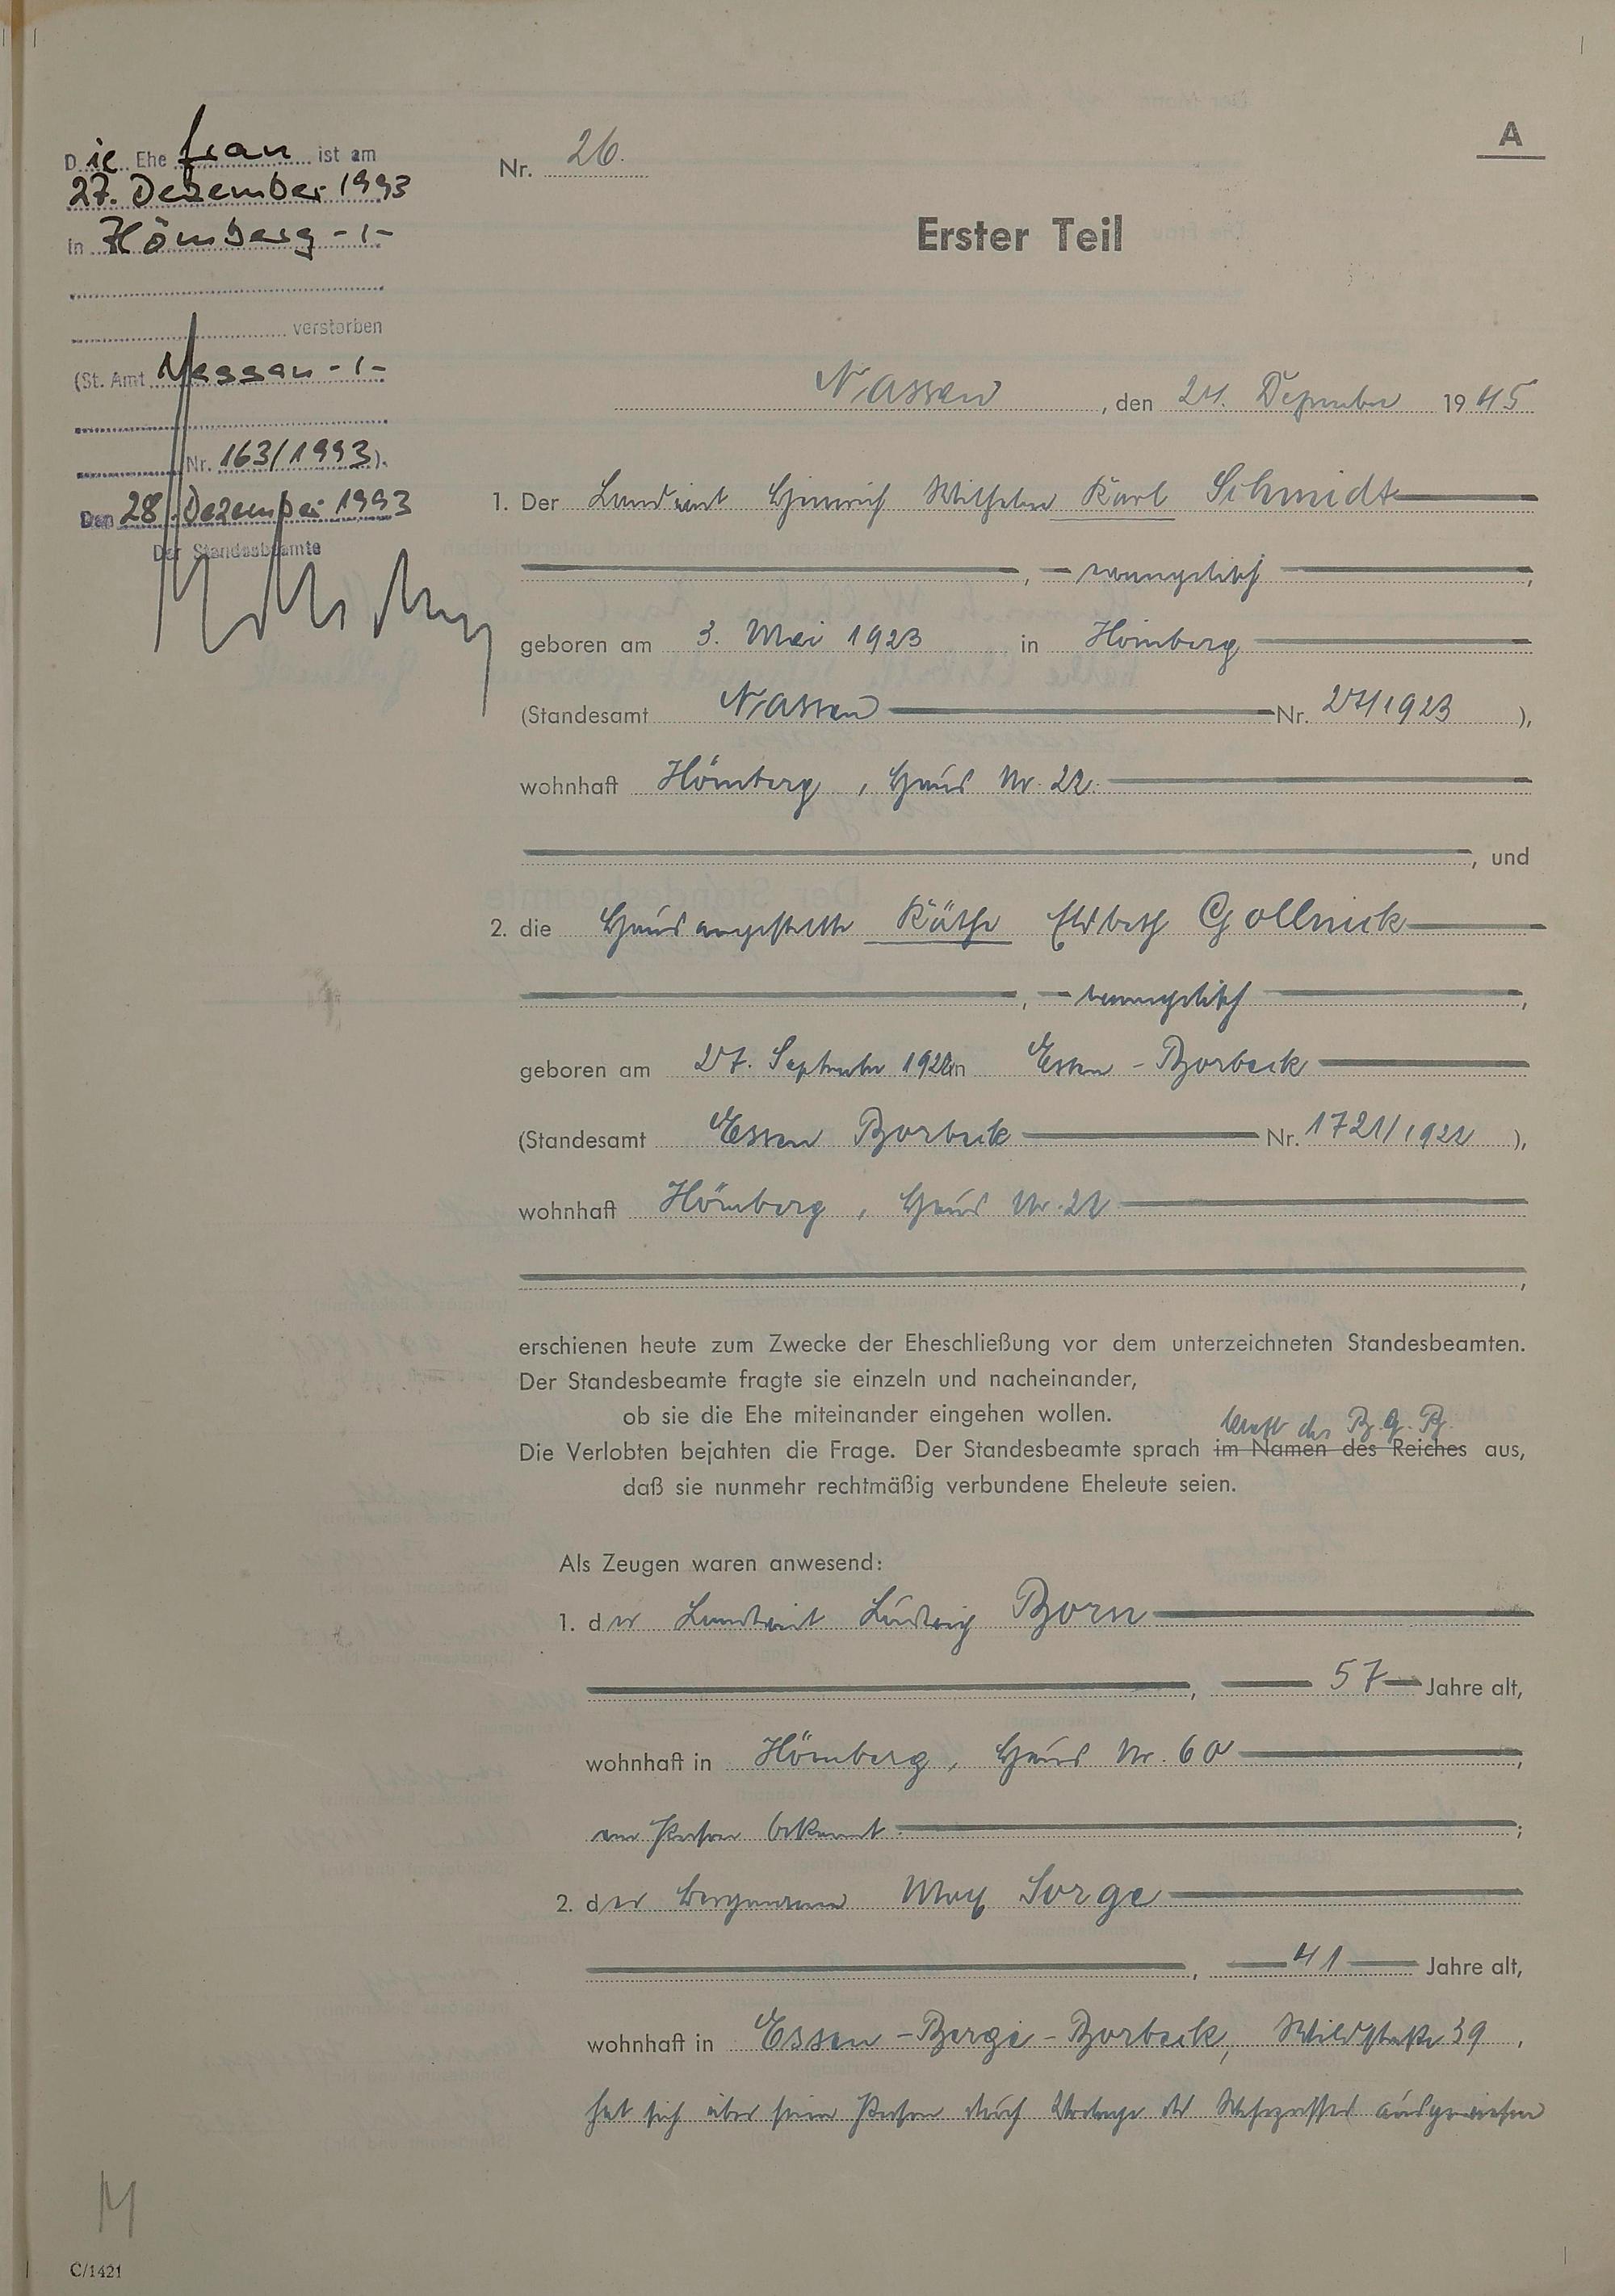 A
Nr. 26.
Erster Teil
Die Ehefrau ist am
27. Dezember 1993
in Hömberg -/-
verstorben
(St. Amt Nassau -/-
Nr. 163/1993).
Den 28. Dezember 1993
Der Standesbeamte
Nassau, den 24. Dezember 1945
1. Der Landwirt Heinrich Wilhelm Karl Schmidt
, evangelisch,
geboren am 3. Mai 1923 in Hömberg
(Standesamt Nassau Nr. 27/1923),
wohnhaft Hömberg, Haus Nr. 22.
, und
2. die Hausangestellte Käthe Elsbeth Gollnick
, evangelisch,
geboren am 27. September 1922 in Essen-Borbeck
(Standesamt Essen Borbeck Nr. 1721/1922),
wohnhaft Hömberg, Haus Nr. 22
,
erschienen heute zum Zwecke der Eheschließung vor dem unterzeichneten Standesbeamten.
Der Standesbeamte fragte sie einzeln und nacheinander,
ob sie die Ehe miteinander eingehen wollen.
kraft des B.G.B.
Die Verlobten bejahten die Frage. Der Standesbeamte sprach im Namen des Reiches aus,
daß sie nunmehr rechtmäßig verbundene Eheleute seien.
Als Zeugen waren anwesend:
1. der Landwirt Ludwig Born
, 57 Jahre alt,
wohnhaft in Hömberg, Haus Nr. 60,
von Person bekannt;
2. der Bergmann Max Sorge
, 41 Jahre alt,
wohnhaft in Essen-Berge-Borbeck, Wildstraße 39,
hat sich über seine Person durch Vorlage des Wehrpasses ausgewiesen
M
C/1421